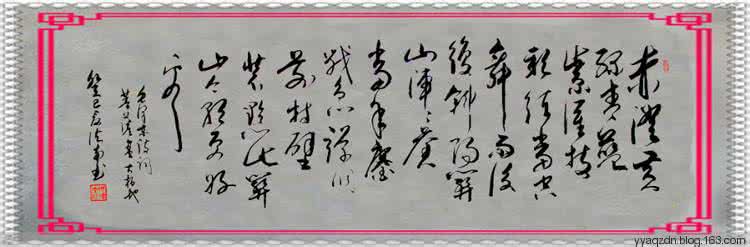 赤橙黄
绿青蓝
紫谁持
彩练当空
舞雨后
复斜阳關
山阵阵苍
当年鏖
战急弹洞
前村壁
装点此關
山今朝更好
看
毛泽东诗词
菩萨蛮大柏地
癸巳 书
yyaqzdn.blog.163.com